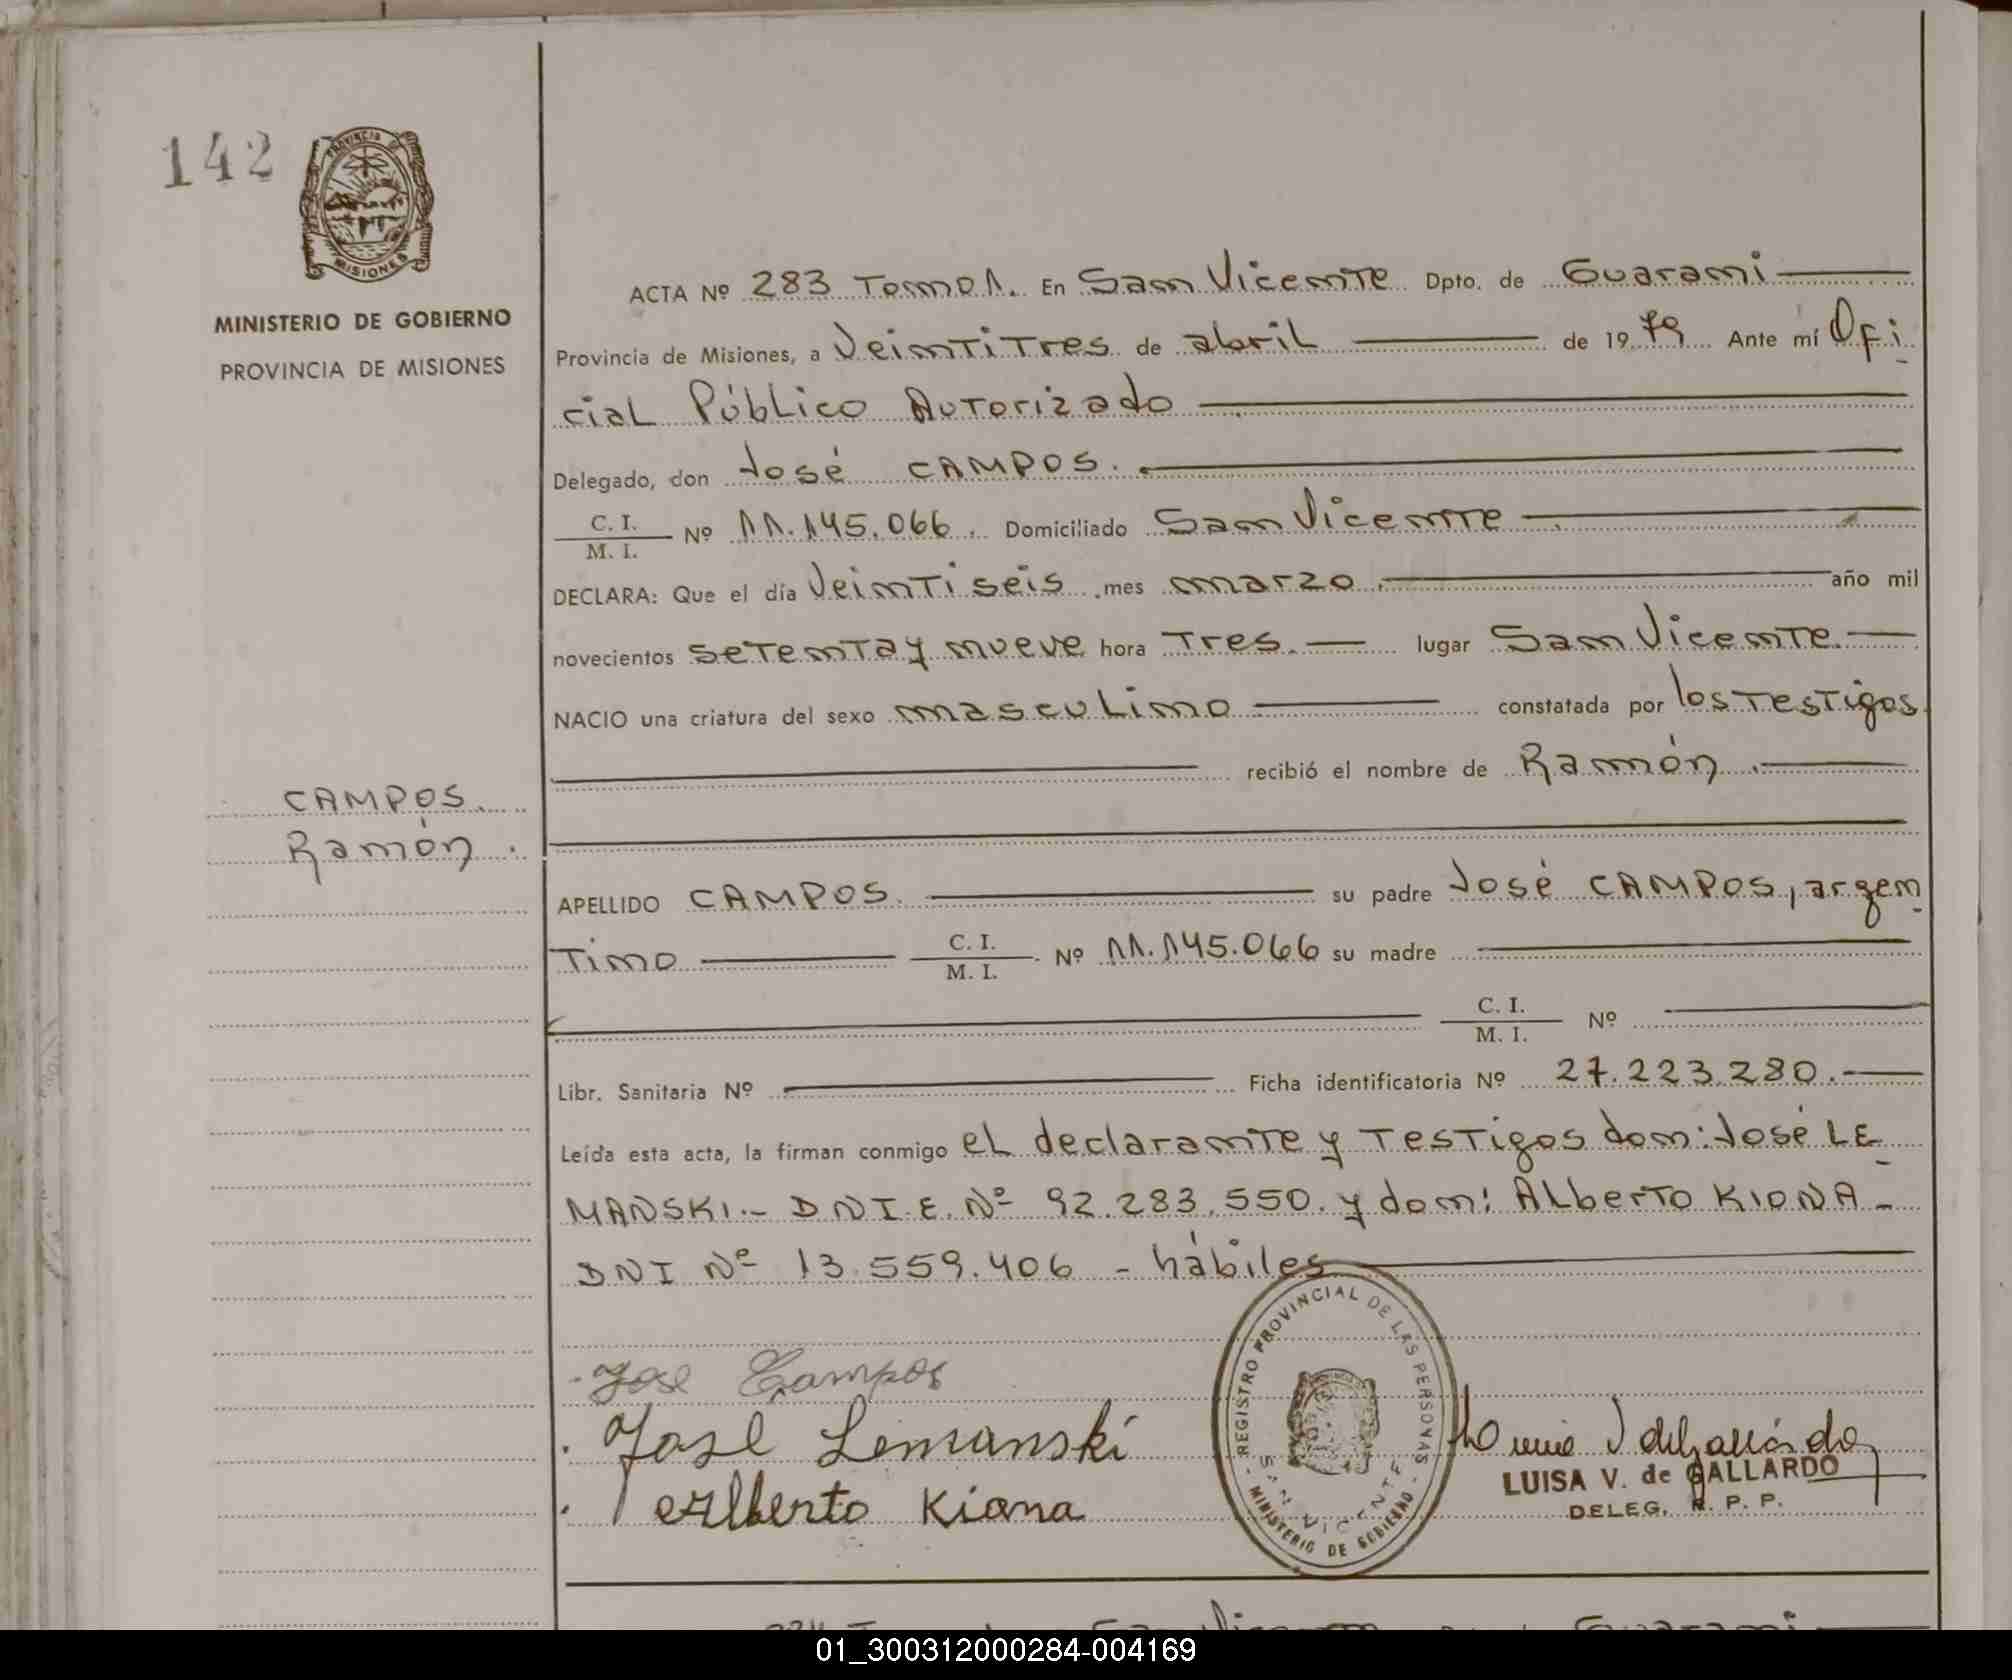 142
PROVINCIA DE
MISIONES
MINISTERIO DE GOBIERNO
PROVINCIA DE MISIONES
ACTA Nº 283 Tomo 1. En San Vicente Dpto. de Guaraní
Provincia de Misiones, a Veintitres de abril de 1979 Ante mí Ofi
cial Público Autorizado
Delegado, don José CAMPOS.
C. I.
M. I. Nº 11.145.066. Domiciliado San Vicente
DECLARA: Que el día Veintiseis mes marzo año mil
novecientos setenta y nueve hora Tres. lugar San Vicente.
NACIO una criatura del sexo masculino constatada por los Testigos
recibió el nombre de Ramón
CAMPOS.
Ramón.
APELLIDO CAMPOS. su padre José CAMPOS, argen
Tino C. I.
M. I. Nº 11.145.066 su madre
C. I.
M. I. Nº
Libr. Sanitaria Nº Ficha identificatoria Nº 27.223.280.
Leída esta acta, la firman conmigo el declarante y Testigos don: José LE
MANSKI.- DNI.E. Nº 92.283.550. y don: Alberto KIONA -
DNI Nº 13.559.406 - hábiles
Jose Campos
José Lemanski
Alberto Kiona
REGISTRO PROVINCIAL DE LAS PERSONAS
SAN VICENTE
MINISTERIO DE GOBIERNO
LUISA V. de GALLARDO
DELEG. R. P. P.
01_300312000284-004169